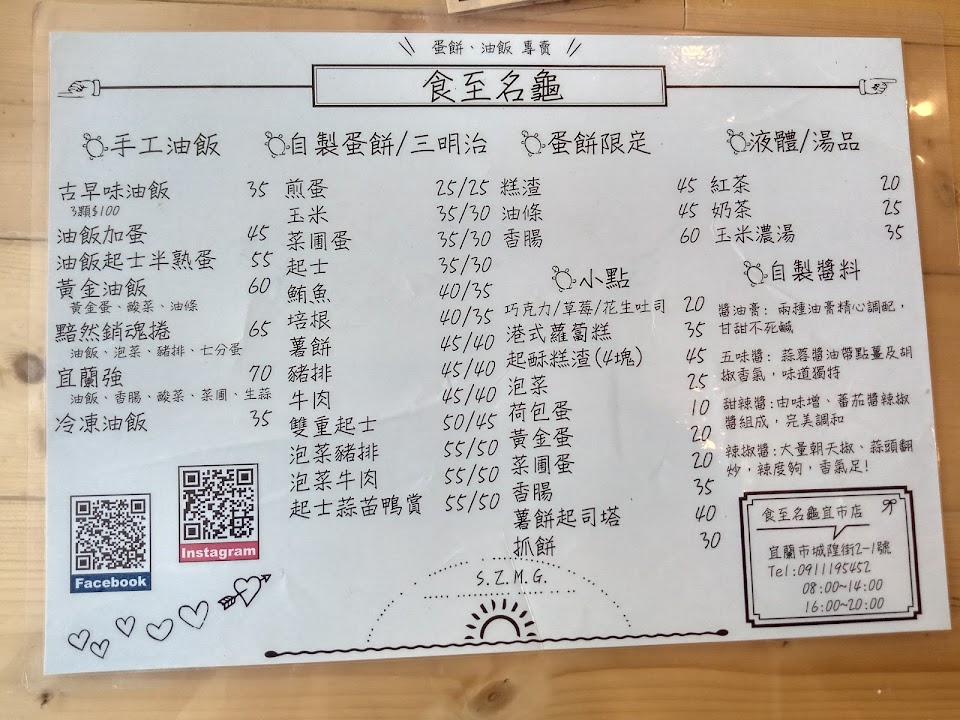 蛋餅、油飯 專賣
食至名龜
手工油飯
古早味油飯 35
3顆$100
油飯加蛋 45
油飯起士半熟蛋 55
黃金油飯 60
黃金蛋、酸菜、油條
黯然銷魂捲 65
油飯、泡菜、豬排、七分蛋
宜蘭強 70
油飯、香腸、酸菜、菜圃、生蒜
冷凍油飯 35
自製蛋餅/三明治
煎蛋 25/25
玉米 35/30
菜圃蛋 35/30
起士 35/30
鮪魚 40/35
培根 40/35
薯餅 45/40
豬排 45/40
牛肉 45/40
雙重起士 50/45
泡菜豬排 55/50
泡菜牛肉 55/50
起士蒜苗鴨賞 55/50
蛋餅限定
糕渣 45
油條 45
香腸 60
小點
巧克力/草莓/花生吐司 20
港式蘿蔔糕 35
起酥糕渣(4塊) 45
泡菜 25
荷包蛋 10
黃金蛋 20
菜圃蛋 20
香腸 35
薯餅起司塔 40
抓餅 30
液體/湯品
紅茶 20
奶茶 25
玉米濃湯 35
自製醬料
醬油膏: 兩種油膏精心調配，
甘甜不死鹹
五味醬: 蒜蓉醬油帶點薑及胡
椒香氣，味道獨特
甜辣醬:由味增、番茄醬辣椒
醬組成，完美調和
辣椒醬:大量朝天椒、蒜頭翻
炒，辣度夠，香氣足!
食至名龜宜市店
宜蘭市城隍街2-1號
Tel:0911195452
08:00~14:00
16:00~20:00
Facebook
Instagram
S.Z.M.G.